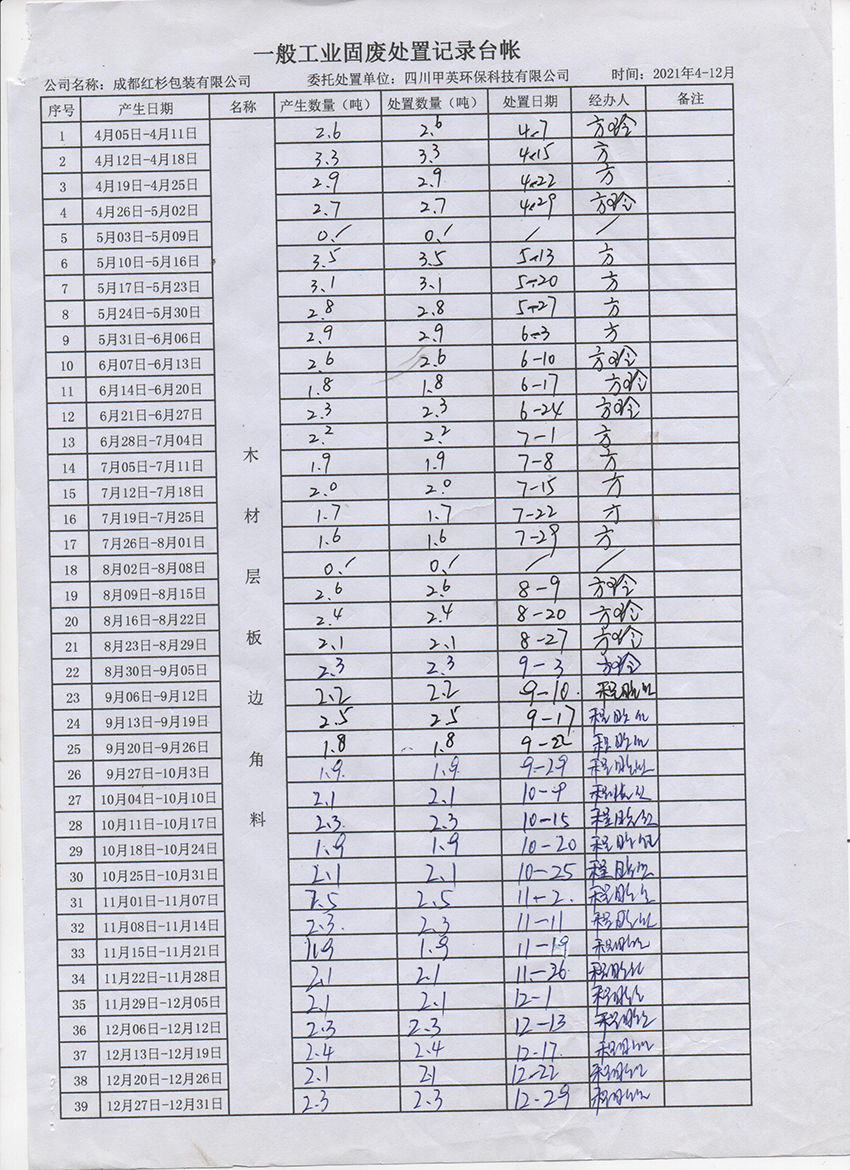 一般工业固废处置记录台帐
公司名称：成都红杉包装有限公司 委托处置单位：四川甲英环保科技有限公司 时间：2021年4-12月
序号 产生日期 名称 产生数量（吨） 处置数量（吨） 处置日期 经办人 备注
1 4月05日-4月11日 2.6 2.6 4.7 方
2 4月12日-4月18日 3.3 3.3 4.15 方
3 4月19日-4月25日 2.9 2.9 4.22 方
4 4月26日-5月02日 2.7 2.7 4.29 方
5 5月03日-5月09日 0./ 0./ / /
6 5月10日-5月16日 3.5 3.5 5-13 方
7 5月17日-5月23日 3.1 3.1 5-20 方
8 5月24日-5月30日 2.8 2.8 5-27 方
9 5月31日-6月06日 2.9 2.9 6-3 方
10 6月07日-6月13日 2.6 2.6 6-10 方
11 6月14日-6月20日 1.8 1.8 6-17 方
12 6月21日-6月27日 2.3 2.3 6-24 方
13 6月28日-7月04日 2.2 2.2 7-1 方
14 7月05日-7月11日 1.9 1.9 7-8 方
15 7月12日-7月18日 2.0 2.0 7-15 方
16 7月19日-7月25日 1.7 1.7 7-22 方
17 7月26日-8月01日 1.6 1.6 7-29 方
18 8月02日-8月08日 0./ 0./ / /
19 8月09日-8月15日 2.6 2.6 8-9 方
20 8月16日-8月22日 2.4 2.4 8-20 方
21 8月23日-8月29日 2.1 2.1 8-27 方
22 8月30日-9月05日 2.3 2.3 9-3 方
23 9月06日-9月12日 2.2 2.2 9-10. 程
24 9月13日-9月19日 2.5 2.5 9-17 程
25 9月20日-9月26日 1.8 1.8 9-22 程
26 9月27日-10月3日 1.9. 1.9 9-29 程
27 10月04日-10月10日 2.1 2.1 10-9 程
28 10月11日-10月17日 2.3. 2.3 10-15 程
29 10月18日-10月24日 1.9 1.9 10-20 程
30 10月25日-10月31日 2.1 2.1 10-25 程
31 11月01日-11月07日 2.5 2.5 11-2. 程
32 11月08日-11月14日 2.3. 2.3 11-11 程
33 11月15日-11月21日 1.9 1.9 11-19 程
34 11月22日-11月28日 2.1 2.1 11-26 程
35 11月29日-12月05日 2.1 2.1 12-1 程
36 12月06日-12月12日 2.3 2.3 12-13 程
37 12月13日-12月19日 2.4 2.4 12-17. 程
38 12月20日-12月26日 2.1 21 12-22 程
39 12月27日-12月31日 2.3 2.3 12-29 程
木
材
层
板
边
角
料